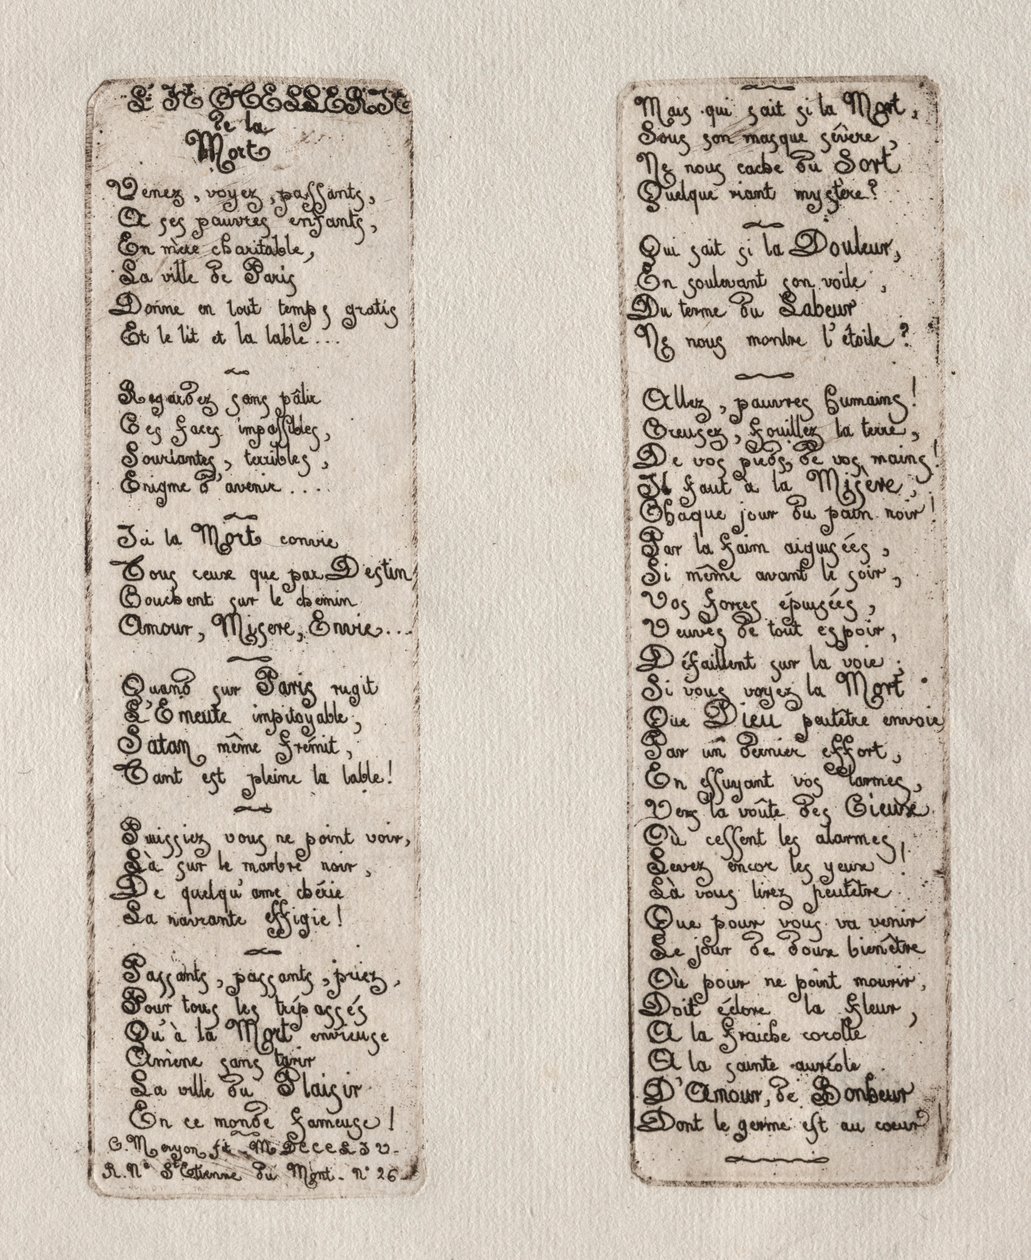 L'HÔTELLERIE
De la
Mort
Venez, voyez, passants,
A ses pauvres enfants,
En mère charitable,
La ville de Paris
Donne en tout temps gratis
Et le lit et la table...
Regardez sans pâlir
Ces faces impassibles,
Souriantes, terribles,
Enigme d'avenir....
Ici la Mort convie
Tous ceux que par Destin,
Couchent sur le chemin
Amour, Misere, Envie...
Quand sur Paris rugit
L'Emeute impitoyable,
Satan même frémit,
Tant est pleine la table!
Puissiez vous ne point voir,
Là sur le marbre noir,
De quelqu'ame chérie
La navrante effigie!
Passants, passants, priez,
Pour tous les trépassés
Qu'à la Mort envieuse
Amène sans tarir
La ville du Plaisir
En ce monde fameuse!
C. Meryon ft. MDCCCLIV.
R. Nve St Etienne du Mont. No 26.
Mais qui sait si la Mort,
Sous son masque sévère,
Ne nous cache du Sort
Quelque riant mystère?
Qui sait si la Douleur,
En soulevant son voile,
Du terme du Labeur
Ne nous montre l'étoile?
Allez, pauvres humains!
Creusez, fouillez la terre,
De vos pieds, de vos mains!
Il faut à la Misère,
Chaque jour du pain noir!
Par la faim aiguisées,
Si même avant le soir,
Vos forces épuisées,
Veuves de tout espoir,
Défaillent sur la voie;
Si vous voyez la Mort
Que Dieu peutêtre envoie
Par un dernier effort,
En essuyant vos larmes,
Vers la voûte des Cieux
Où cessent les alarmes,
Levez encor les yeux!
Là vous lirez peutêtre
Que pour vous va venir
Le jour de doux bienêtre
Où pour ne point mourir,
Doit éclore la fleur,
A la fraiche corolle
A la sainte auréole
D'Amour, de Bonheur
Dont le germe est au coeur!